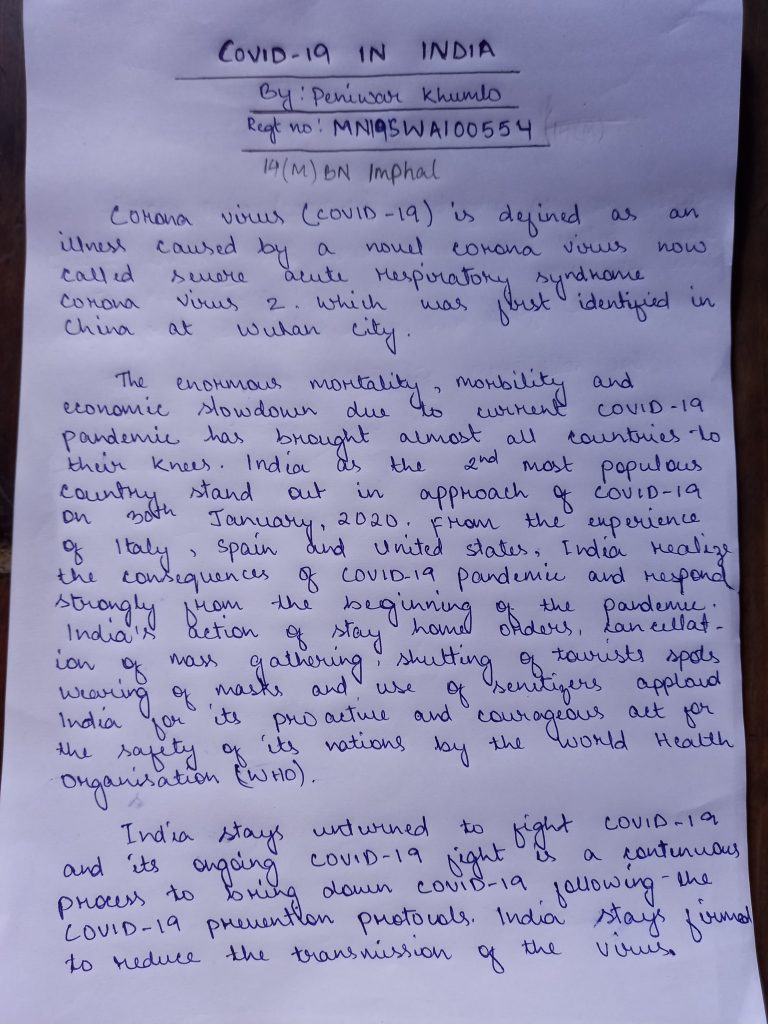 COVID-19 IN INDIA
By: Peniwar Khumlo
Regt no: MN19SWA100554
14(M) BN Imphal
Corona virus (COVID-19) is defined as an
illness caused by a novel corona virus now
called severe acute respiratory syndrome
corona virus 2. which was first identified in
China at Wuhan city.
The enormous mortality, morbility and
economic slowdown due to current COVID-19
pandemic has brought almost all countries to
their knees. India as the 2nd most populous
country stand out in approach of COVID-19
on 30th January, 2020. From the experience
of Italy, Spain and United states, India realize
the consequences of COVID-19 pandemic and respond
strongly from the beginning of the pandemic.
India's action of stay home orders, cancellat-
ion of mass gathering, shutting of tourists spots
wearing of masks and use of senitizers applaud
India for its proactive and courageous act for
the safety of its nations by the World Health
Organisation (WHO).
India stays unturned to fight COVID-19
and its ongoing COVID-19 fight is a continuous
process to bring down COVID-19 following the
COVID-19 prevention protocols. India stays firmed
to reduce the transmission of the virus.